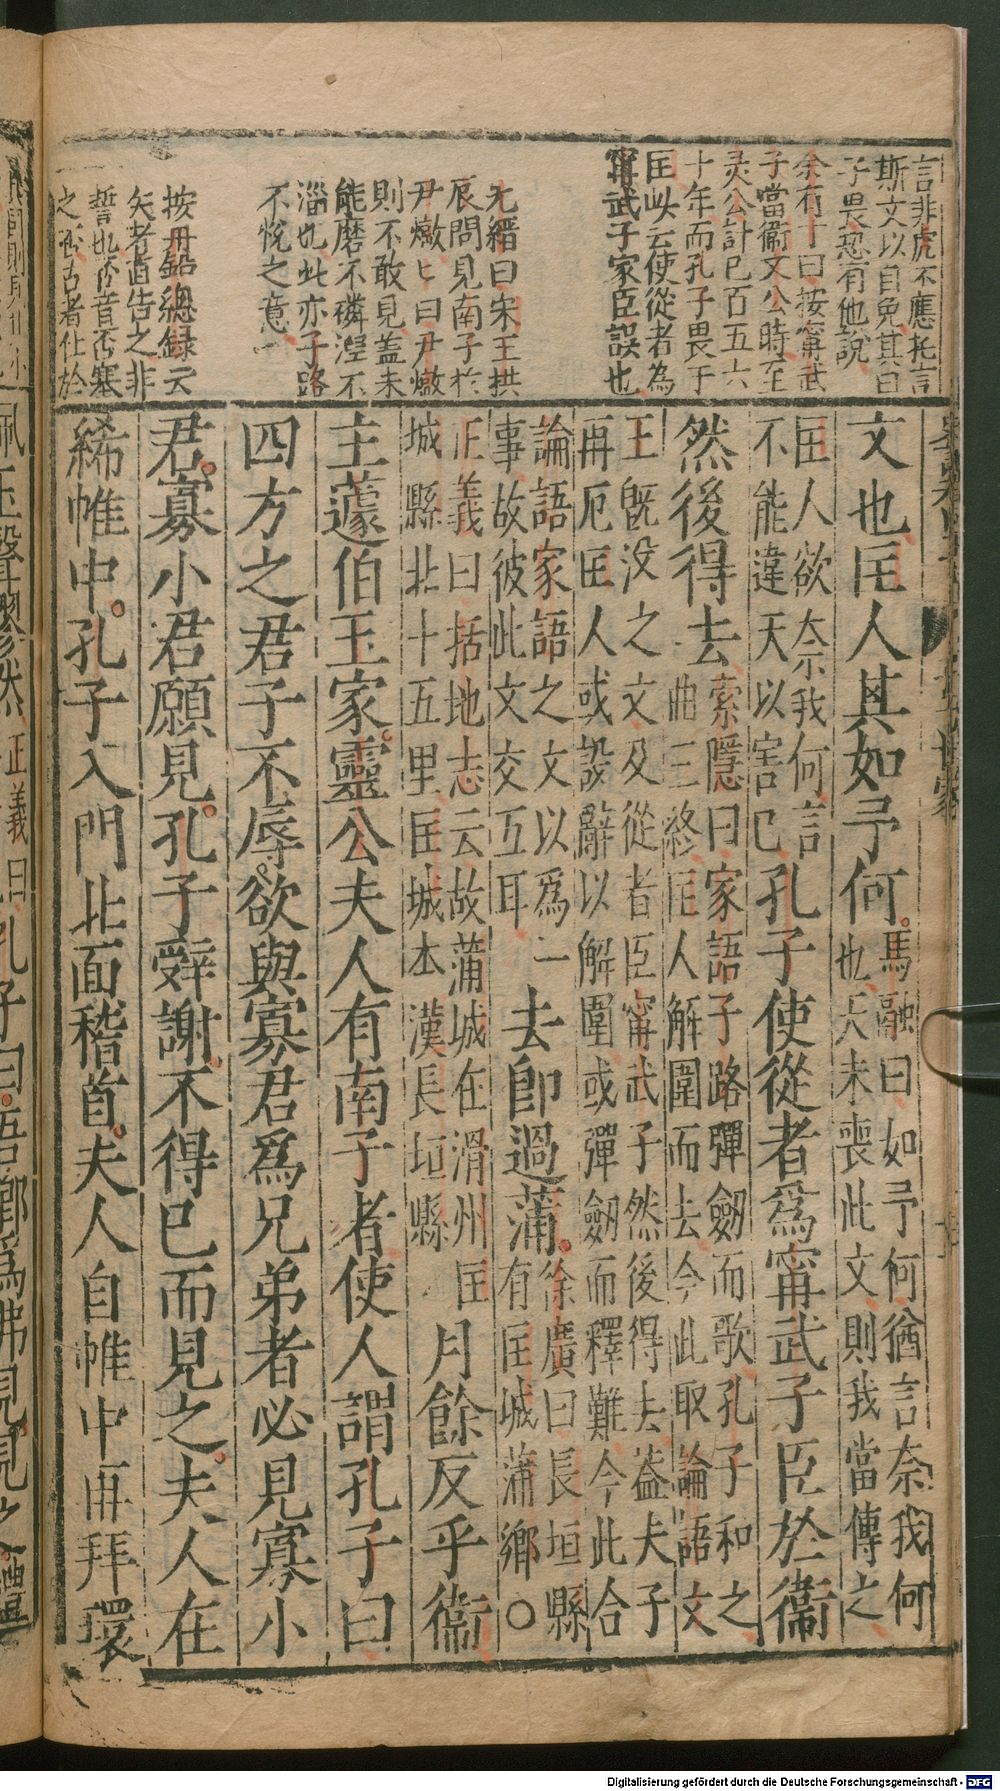 言非虎不應托言
斯文以自免其曰
子畏恐有他說
余有丁曰按甯武
子當衞文公時至
灵公計已百五六
十年而孔子畏于
匡此云使從者為
甯武子家臣誤也
縉曰宋王拱
辰問見南子於
尹燉ヒ曰尹燉
則不敢見蓋未
能磨不磷湼不
淄也此亦子路
不悅之意
按丹鉛總録云
矢者直告之非
誓也否音否塞
之否古者仕於
文也匡人其如予何。馬融曰如予何猶言奈我何
也天未喪此文則我當傳之
匡人欲奈我何言
不能違天以害已孔子使從者爲甯武子臣於衞
然後得去索隱曰家語子路彈劒而歌孔子和之
曲三終匡人解圍而去今此取論語文
王旣没之文及從者臣甯武子然後得去葢夫子
再厄匡人或設辭以解圍或彈劒而釋難今此合
論語家語之文以爲一
事故彼此文交互耳去卽過蒲。徐廣曰長垣縣
有匡城蒲鄉〇
正義曰括地志云故蒲城在滑州匡
城縣北十五里匡城本漢長垣縣月餘反乎衞
主蘧伯玉家。靈公夫人有南子者使人謂孔子曰
四方之君子不辱。欲與寡君爲兄弟者必見寡小
君。寡小君願見。孔子辭謝。不得已而見之。夫人在
絺帷中。孔子入門北面稽首。夫人自帷中再拜環
珮玉聲璆然正義曰孔子曰。吾鄉爲弗見見之禮
Digitalisierung gefördert durch die Deutsche Forschungsgemeinschaft - DFG